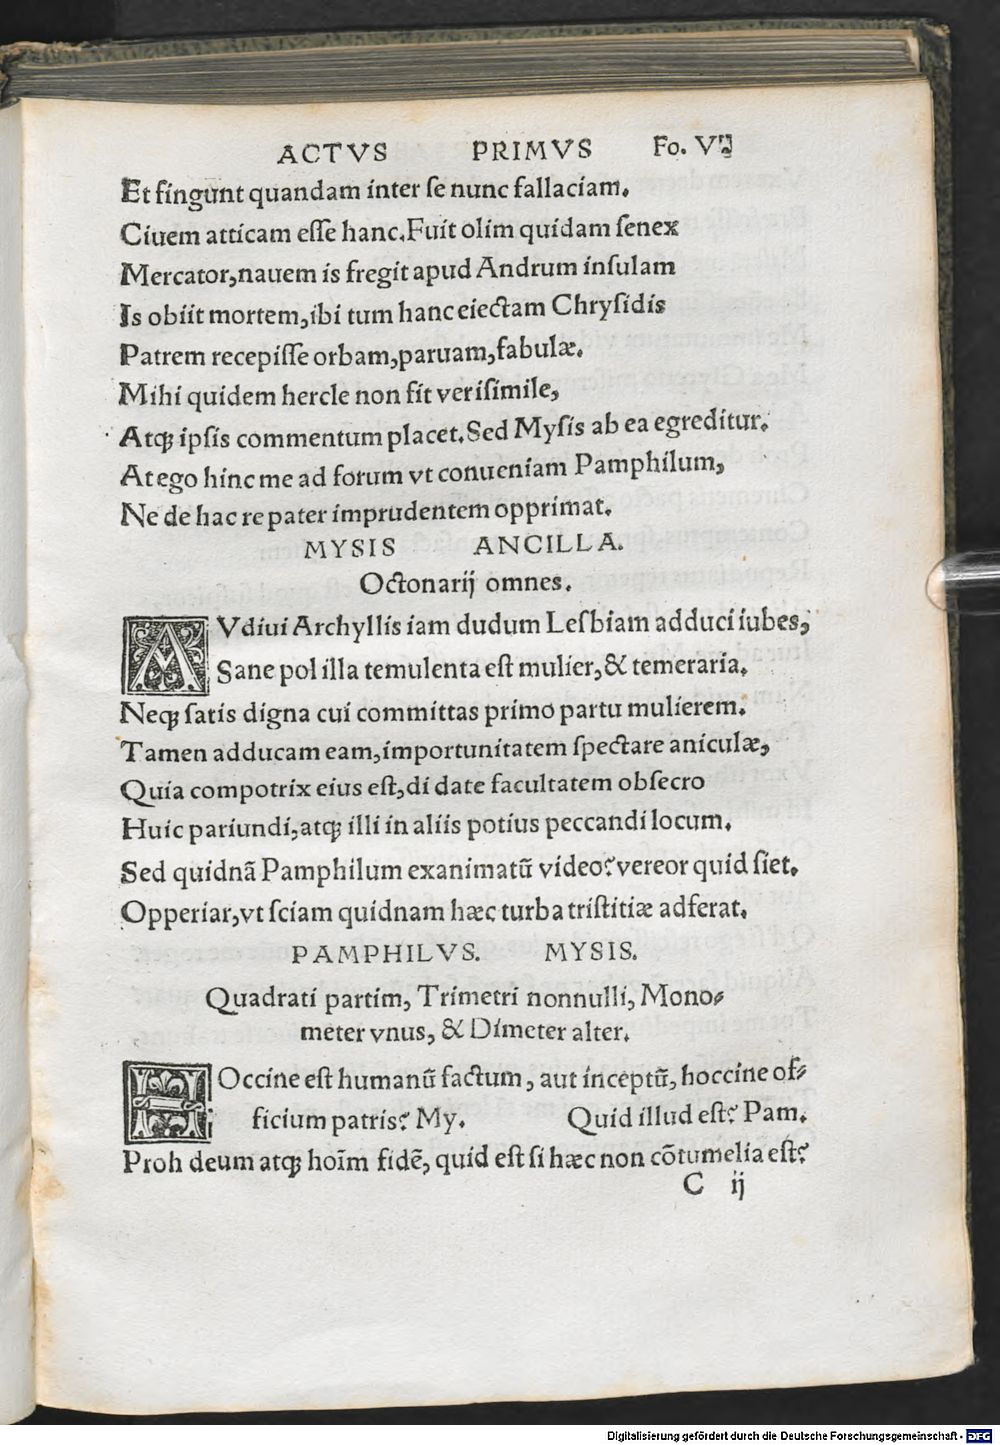 ACTVS PRIMVS Fo. VIJ
Et fingunt quandam inter ſe nunc fallaciam.
Ciuem atticam eſſe hanc.Fuit olim quidam ſenex
Mercator,nauem is fregit apud Andrum inſulam
Is obiit mortem,ibi tum hanc eiectam Chryſidis
Patrem recepiſſe orbam,paruam,fabulæ.
Mihi quidem hercle non fit veriſimile,
Atqꝫ ipſis commentum placet.Sed Myſis ab ea egreditur.
At ego hinc me ad forum vt conueniam Pamphilum,
Ne de hac re pater imprudentem opprimat.
MYSIS ANCILLA.
Octonarij omnes.
AVdiui Archyllis iam dudum Leſbiam adduci iubes,
Sane pol illa temulenta eſt mulier,& temeraria.
Neqꝫ ſatis digna cui committas primo partu mulierem.
Tamen adducam eam,importunitatem ſpectare aniculæ,
Quia compotrix eius eſt,di date facultatem obſecro
Huic pariundi,atqꝫ illi in aliis potius peccandi locum.
Sed quidnã Pamphilum exanimatũ video?vereor quid ſiet.
Opperiar,vt ſciam quidnam hæc turba triſtitiæ adferat.
PAMPHILVS. MYSIS.
Quadrati partim, Trimetri nonnulli, Mono⸗
meter vnus, & Dimeter alter.
HOccine eſt humanũ factum, aut inceptũ, hoccine of⸗
ficium patris? My. Quid illud eſt? Pam.
Proh deum atqꝫ hoĩm fidẽ, quid eſt ſi hæc non cõtumelia eſt?
C ij
Digitalisierung gefördert durch die Deutsche Forschungsgemeinschaft - DFG